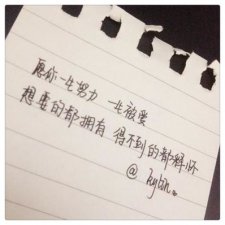 愿你一生努力 一生被爱
想要的都拥有 得不到的都释怀
@